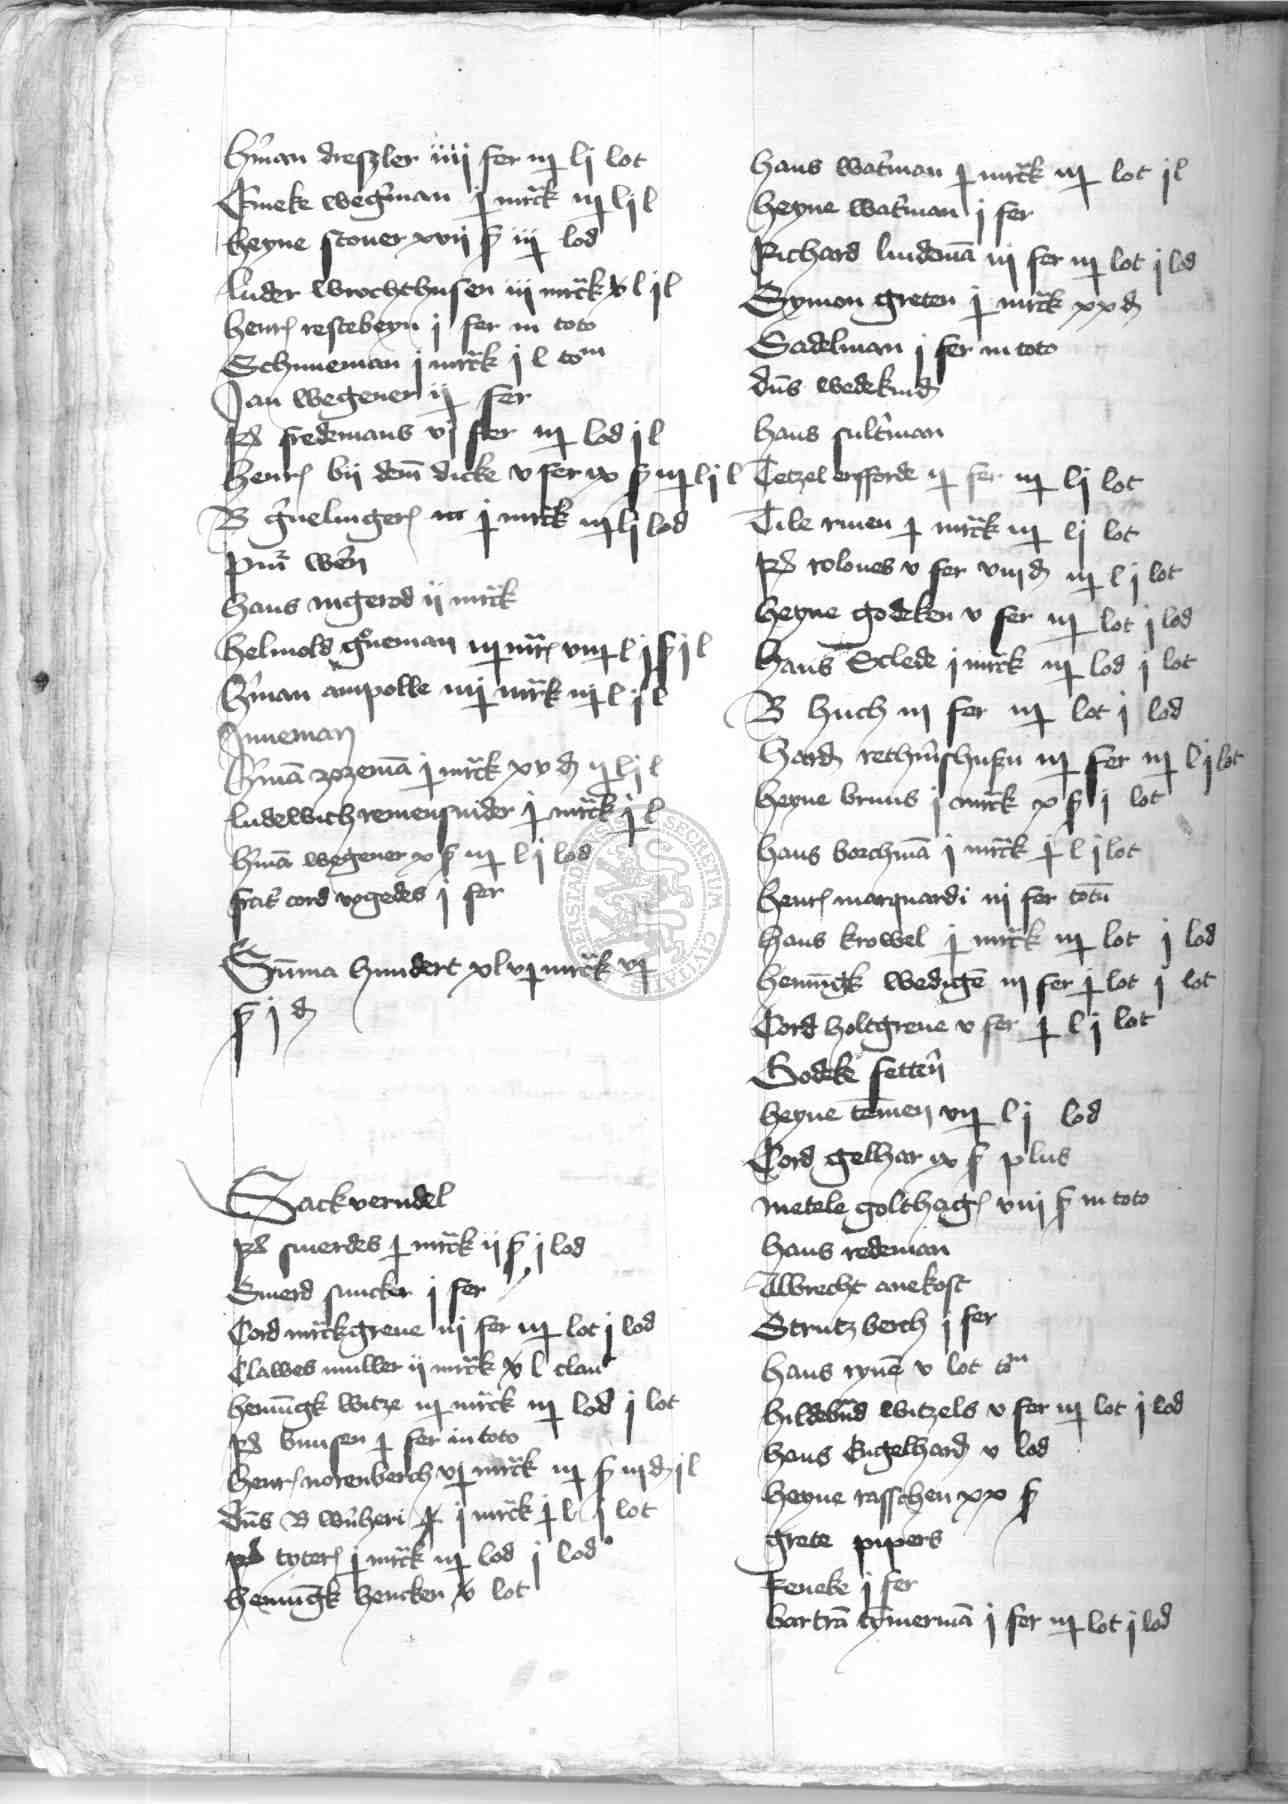 h'man dreszler iiij fer iij lj lot
Cineke weg'man j m'rck iij lj l
heyne stouer xvij ß iij lod
luder wrochthusen iij m'rck x l jl
henr' restebeyn j fer in toto
Schuneman j m'rck j l tom
Jan wegener ij fer
pet' fredemans vj fer iij lod j l
henr' bij dem dicke v fer ix ß iij l j l
B g'uelinger' j m'rck iij lj lod
hans ingerod ij m'rck
helmold g°neman iij mr' viij l j ß j l
h'man ampolle iiij m'rck iij l j l
Inneman
h'ma zozema j m'rck xv d ij lj l
ludewich remensnider j m'rck j l
h'ma wegener x ß iij l j lod
frat' cord vogedes j fer
Summa hundert xlvj m'rck vj
ß j d
Sackverndel
pet' swerdes j m'rck ij ß j lod
Swerd suncker j fer
Cord m'rckgreue iij fer iij lot j lod
Clawes muller ij m'rck x l clau'
hennigk witze iij m'rck iij lod j lot
pet' bunsen j fer in toto
henr' norenberch vj m'rck iij ß iij d j l
dns B w'heri j m'rck j l j lot
pet' toter' j m'rck iij lod j lod
hennigk hencken x lot
hans wat'man j m'rck iij lot j l
heyne wat'man j fer
Richard lindema iij fer iij lot j lod
Symon greten j m'rck xx d
Sadelman j fer in toto
dns wedekind
hans sult'man
Tetzel erfforde ij fer iij lj lot
Tile rinen j m'rck iij lj lot
pet' roloues v fer viij d iij l j lot
heyne godeken v fer iij lot j lod
hans Sclede j m'rck iij lod j lot
B huch iij fer iij lot j lod
hard' rethmshusen iij fer iij l j lot
heyne bruns j m'rck x ß j lot
hans borchma j m'rck j l j lot
henr' marquardi iij fer totu
hans krowel j m'rck iij lot j lod
hennigk wedige iij fer j lot j lot
Cord holtgreue v fer j l j lot
Godeke fetten
heyne temen vij l j lod
Cord gelhar ix ß plus
metele golthag' viij ß in toto
hans redeman
Albrecht anekost
Strutzberch j fer
hans ryne v lot tom
hildebrand witzels v fer iij lot j lod
hans Engelhard v lod
heyne rasschen xx ß
grete pipers
Reneke j fer
bartra tymerma j fer iij lot j lod
SECRETUM CIVITATIS